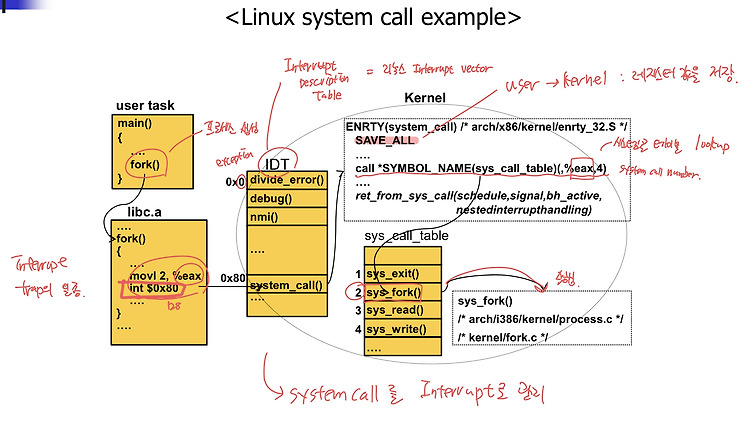 <Linux system call example>
Interrupt
Description
Table
= 리눅스 Interrupt vector
user → kernel : 레지스터 값을 저장.
user task
main()
{
....
fork()
}
프로세스 생성
exception
IDT
0x0
divide_error()
debug()
nmi()
....
0x80
system_call()
....
libc.a
....
fork()
{
....
movl 2, %eax
int $0x80
128
....
}
....
Interrupt
trap의 일종.
Kernel
ENRTY(system_call) /* arch/x86/kernel/enrty_32.S */
SAVE_ALL
....
call *SYMBOL_NAME(sys_call_table)(,%eax,4)
....
ret_from_sys_call(schedule,signal,bh_active,
nestedinterrupthandling)
시스템콜 테이블 lookup
system call number.
sys_call_table
1 sys_exit()
2 sys_fork()
3 sys_read()
4 sys_write()
....
sys_fork()
/* arch/i386/kernel/process.c */
/* kernel/fork.c */
→ system call 를 Interrupt로 관리